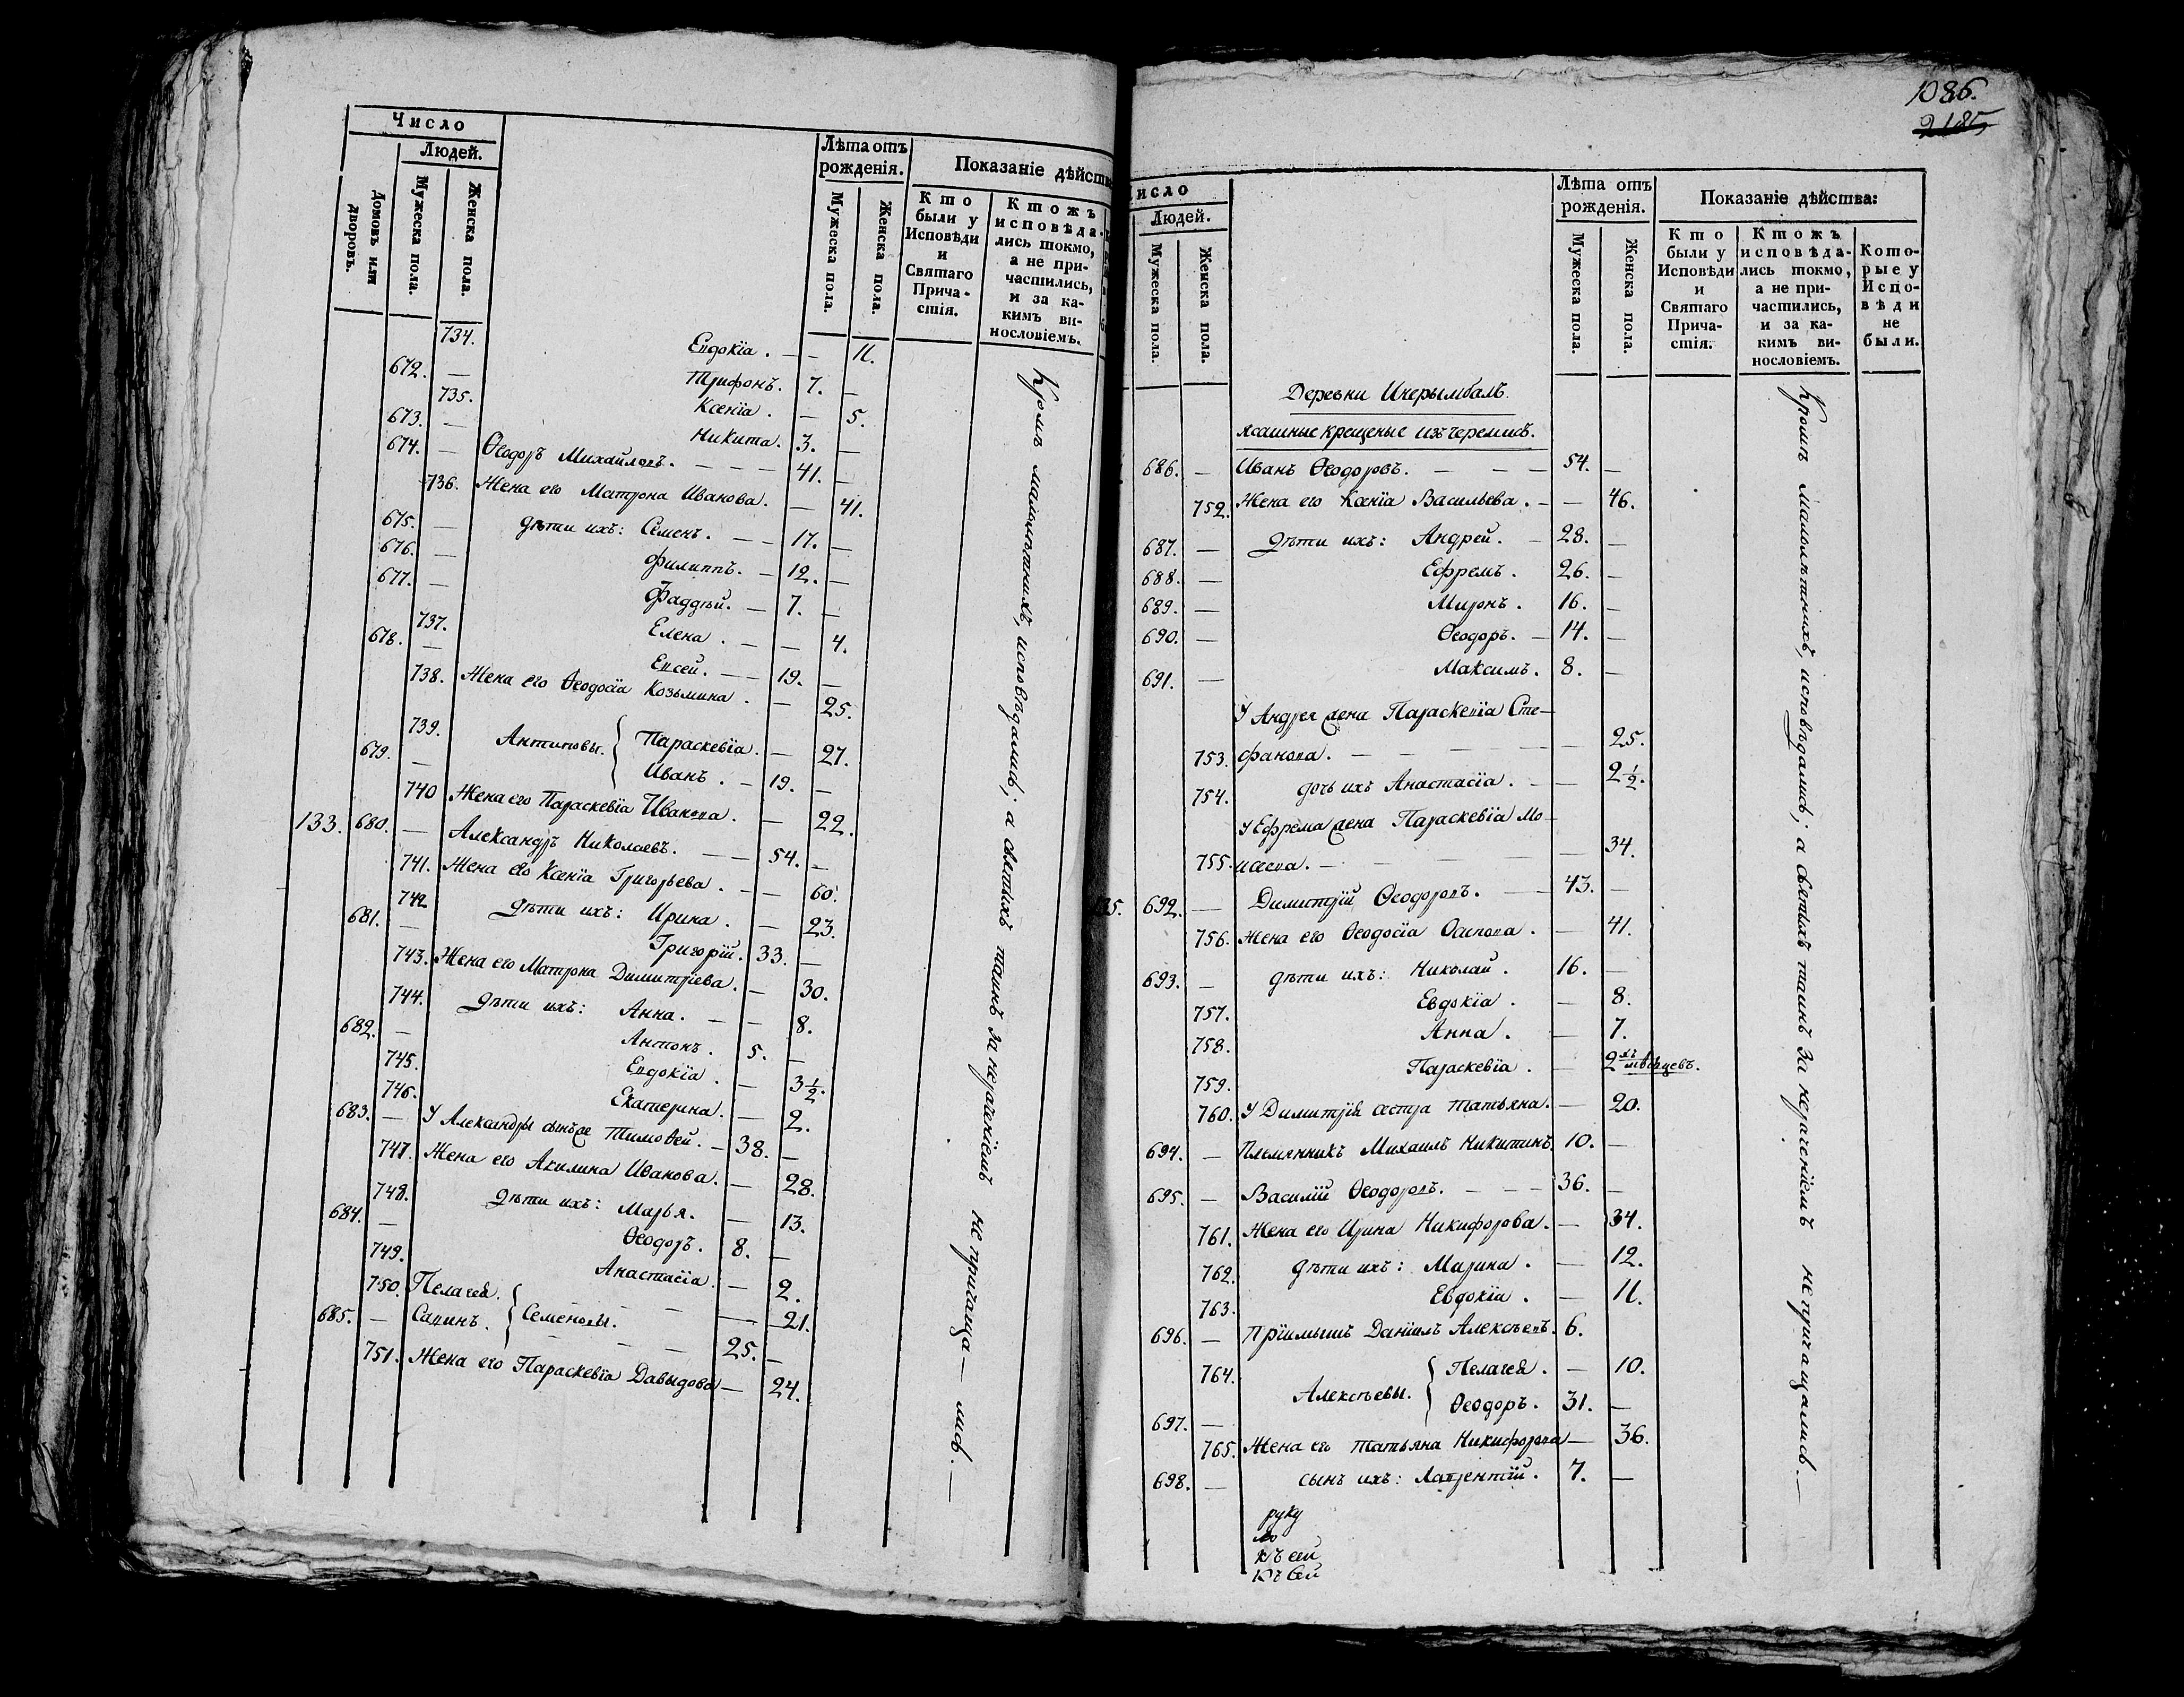 Число
Людей.
Домовъ или дворовъ.
Мужеска пола.
Женска пола.
Лѣта отъ рожденія.
Мужеска пола.
Женска пола.
Показаніе дѣйства
Кто были у Исповѣди и Святаго Прича-стія.
Ктожъ исповѣда-лись токмо, а не при-частились, и за ка-кимъ ви-нословіемъ.
734. Евдокіа. — — 11.
672. — Трифонъ. 7. —
735. Ксеніа. — 5.
673. — Никита. 3. —
674. — Ѳеодоръ Михайловъ. — — — 41. —
736. Жена его Матрона Иванова. — 41.
675. — дѣти ихъ: Семенъ. — — 17. —
676. — Филиппъ. — 12. —
677. — Фаддѣй. — 7. —
737. Елена. — — 4.
678. — Евсей. — — 19. —
738. Жена его Ѳеодосіа Козьмина. — 25.
739. Антиповы. { Параскевіа. — 27.
679. — Иванъ. — 19. —
740 Жена его Параскевіа Иванова. — 22.
133. 680. — Александръ Николаевъ. — — 54. —
741. Жена его Ксеніа Григорьева. — — 60.
742 дѣти ихъ: Ирина. — 23.
681. — Григорій. 33. —
743. Жена его Матрона Димитріева. — 30.
744. дѣти ихъ: Анна. — — 8.
682. — Антонъ. 5. —
745. Евдокіа. — 3 1/2.
746. Екатерина. — 2.
683. — У Александры сынъ ея Тимоѳей. — 38. —
747. Жена его Акилина Иванова. — 28.
748. дѣти ихъ: Марья. — 13.
684. — Ѳеодоръ. 8. —
749. Анастасіа. — 2.
750. Пелагея. { Семеновы. — — — 21.
685. — Савинъ. — — 25. —
751. Жена его Параскевіа Давыдова — 24.
Кромѣ малолѣтнихъ, исповѣдались; а святыхъ таинъ за нераченіемъ не прича-ща-лись. —
1086.
2185,
Число
Людей.
Мужеска пола.
Женска пола.
Лѣта отъ рожденія.
Мужеска пола.
Женска пола.
Показаніе дѣйства:
Кто были у Исповѣди и Святаго Прича-стія.
Ктожъ исповѣда-лись токмо, а не при-частились, и за ка-кимъ ви-нословіемъ.
Кото-рые у Испо-вѣди не были.
Деревни Ичерымбалъ.
ясашные крещеные изъ черемисъ.
686. — Иванъ Ѳеодоровъ. — — — 54. —
752. Жена его Ксеніа Васильева. — — 46.
687. — дѣти ихъ: Андрей. — 28. —
688. — Ефремъ. 26. —
689. — Миронъ. 16. —
690. — Ѳеодоръ. — 14. —
691. — Максимъ. 8. —
У Андрея жена Параскевіа Сте-
753. фанова. — — — — — 25.
754. дочь ихъ Анастасіа. — — 2 1/2.
У Ефрема жена Параскевіа Мо-
755. исеева. — — — — 34.
692. — Димитрій Ѳеодоровъ. — — 43. —
756. Жена его Ѳеодосіа Осипова. — — 41.
693. — дѣти ихъ: Николай. 16. —
757. Евдокіа. — 8.
758. Анна. — 7.
759. Параскевіа. — 2хъ мѣсяцевъ.
760. У Димитрія сестра Татьяна. — 20.
694. — Племянникъ Михаилъ Никитинъ 10. —
695. — Василій Ѳеодоровъ. — — — 36. —
761. Жена его Ирина Никифорова. — 34.
762. дѣти ихъ: Марина. — 12.
763. Евдокіа. — 11.
696. — Пріимышъ Даніилъ Алексѣевъ. 6.
764. Алексѣевы. { Пелагея. — 10.
697. — Ѳеодоръ. 31. —
765. Жена его Татьяна Никифорова — 36.
698. — сынъ ихъ: Лаврентій. 7. —
Кромѣ малолѣтнихъ, исповѣдались; а святыхъ таинъ за нераченіемъ не причащались. —
руку
къ сей
къ сей